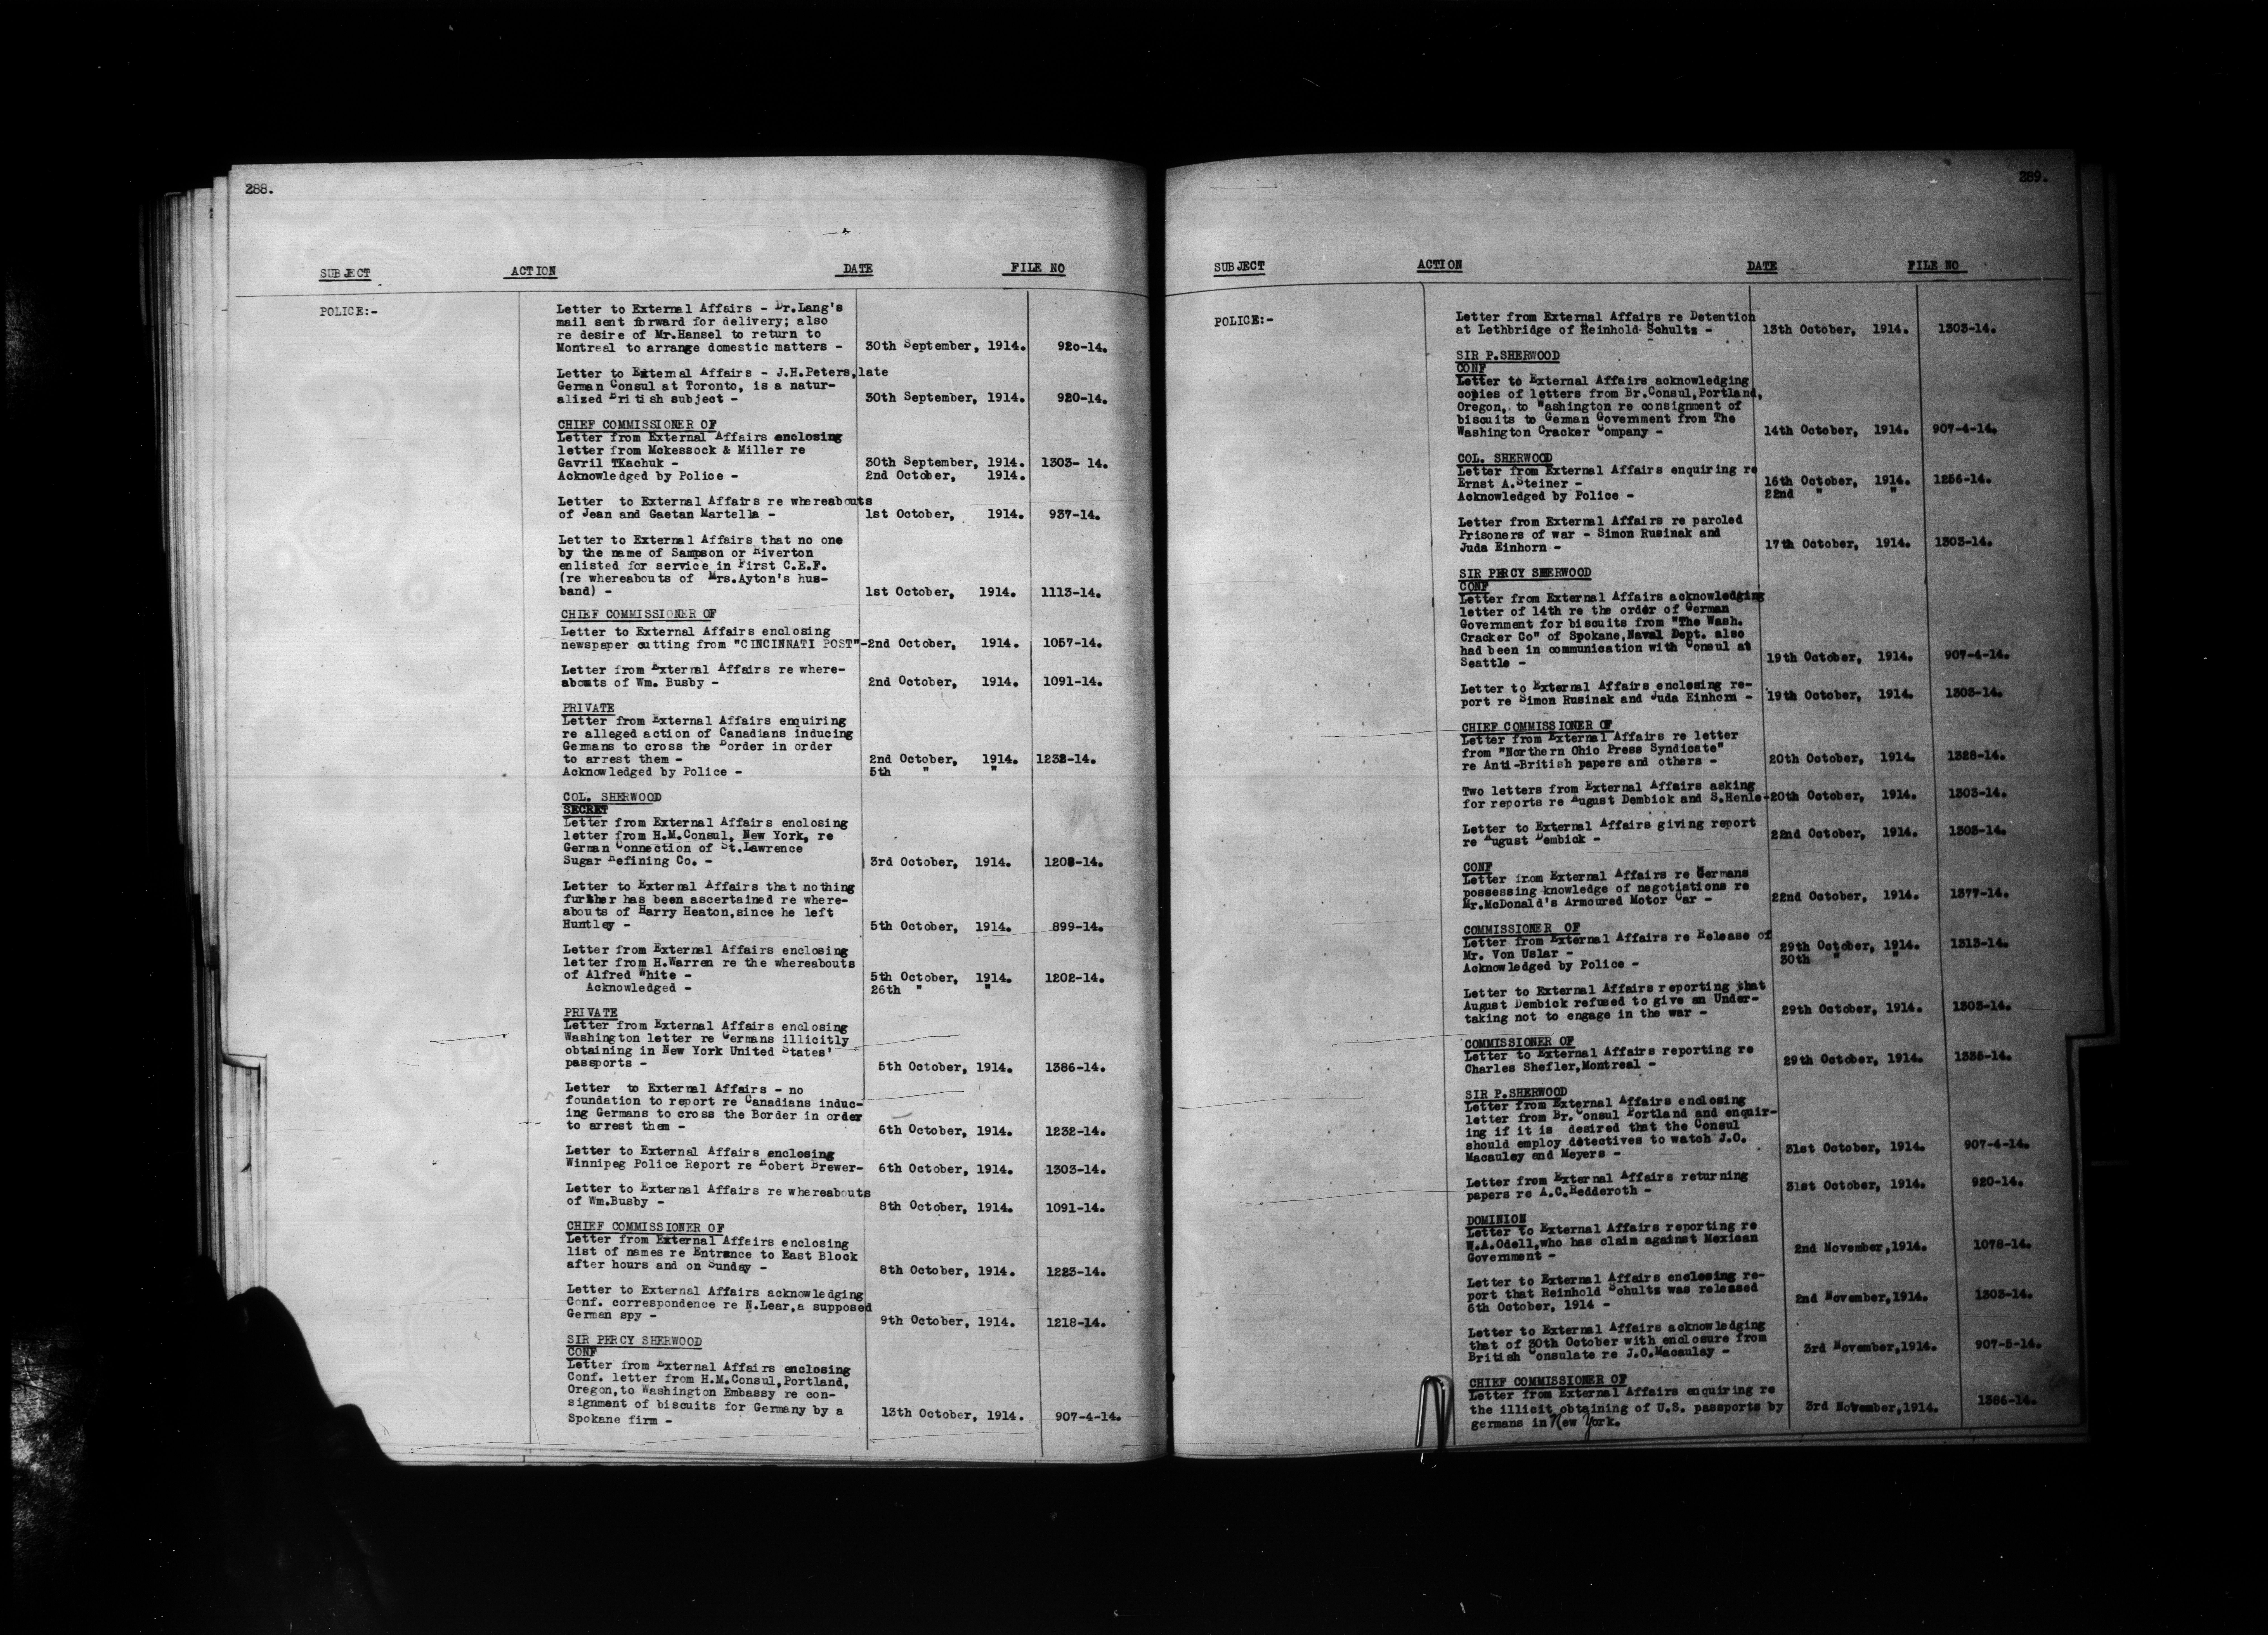 288.
SUBJECT ACTION DATE FILE NO
POLICE:-
Letter to External Affairs - Dr.Lang's
mail sent forward for delivery; also
re desire of Mr.Hansel to return to
Montreal to arrange domestic matters - 30th September, 1914. 920-14.
Letter to External Affairs - J.H.Peters, late
German Consul at Toronto, is a natur-
alized British subject - 30th September, 1914. 920-14.
CHIEF COMMISSIONER OF
Letter from External Affairs enclosing
letter from Mckessock & Miller re
Gavril TKachuk - 30th September, 1914. 1303- 14.
Acknowledged by Police - 2nd October, 1914.
Letter to External Affairs re whereabouts
of Jean and Gaetan Martella - 1st October, 1914. 937-14.
Letter to External Affairs that no one
by the name of Sampson or Riverton
enlisted for service in First C.E.F.
(re whereabouts of Mrs.Ayton's hus-
band) - 1st October, 1914. 1113-14.
CHIEF COMMISSIONER OF
Letter to External Affairs enclosing
newspaper cutting from "CINCINNATI POST"-2nd October, 1914. 1057-14.
Letter from External Affairs re where-
abouts of Wm. Busby - 2nd October, 1914. 1091-14.
PRIVATE
Letter from External Affairs enquiring
re alleged action of Canadians inducing
Germans to cross the Border in order
to arrest them - 2nd October, 1914. 1232-14.
Acknowledged by Police - 5th " "
COL. SHERWOOD
SECRET
Letter from External Affairs enclosing
letter from H.M.Consul, New York, re
German Connection of St.Lawrence
Sugar Refining Co. - 3rd October, 1914. 1208-14.
Letter to External Affairs that nothing
further has been ascertained re where-
abouts of Harry Heaton,since he left
Huntley - 5th October, 1914. 899-14.
Letter from External Affairs enclosing
letter from H.Warren re the whereabouts
of Alfred White - 5th October, 1914. 1202-14.
Acknowledged - 26th " "
PRIVATE
Letter from External Affairs enclosing
Washington letter re Germans illicitly
obtaining in New York United States'
passports - 5th October, 1914. 1386-14.
Letter to External Affairs - no
foundation to report re Canadians induc-
ing Germans to cross the Border in order
to arrest them - 6th October, 1914. 1232-14.
Letter to External Affairs enclosing
Winnipeg Police Report re Robert Brewer- 6th October, 1914. 1303-14.
Letter to External Affairs re whereabouts
of Wm.Busby - 8th October, 1914. 1091-14.
CHIEF COMMISSIONER OF
Letter from External Affairs enclosing
list of names re Entrance to East Block
after hours and on Sunday - 8th October, 1914. 1223-14.
Letter to External Affairs acknowledging
Conf. correspondence re N.Lear,a supposed
German spy - 9th October, 1914. 1218-14.
SIR PERCY SHERWOOD
CONF
Letter from External Affairs enclosing
Conf. letter from H.M.Consul,Portland,
Oregon,to Washington Embassy re con-
signment of biscuits for Germany by a
Spokane firm - 13th October, 1914. 907-4-14.
289.
SUBJECT ACTION DATE FILE NO
POLICE:-
Letter from External Affairs re Detention
at Lethbridge of Reinhold Schults - 13th October, 1914. 1303-14.
SIR P.SHERWOOD
CONF
Letter to External Affairs acknowledging
copies of letters from Br.Consul,Portland,
Oregon, to Washington re consignment of
biscuits to German Government from The
Washington Cracker Company - 14th October, 1914. 907-4-14.
COL. SHERWOOD
Letter from External Affairs enquiring re
Ernst A.Steiner - 16th October, 1914. 1256-14.
Acknowledged by Police - 22nd " "
Letter from External Affairs re paroled
Prisoners of war - Simon Rusinak and
Juda Einhorn - 17th October, 1914. 1303-14.
SIR PERCY SHERWOOD
CONF
Letter from External Affairs acknowledging
letter of 14th re the order of German
Government for biscuits from "The Wash.
Cracker Co" of Spokane,Naval Dept. also
had been in communication with Consul at
Seattle - 19th October, 1914. 907-4-14.
Letter to External Affairs enclosing re-
port re Simon Rusinak and Juda Einhorn - 19th October, 1914. 1303-14.
CHIEF COMMISSIONER OF
Letter from External Affairs re letter
from "Northern Ohio Press Syndicate"
re Anti-British papers and others - 20th October, 1914. 1328-14.
Two letters from External Affairs asking
for reports re August Dembick and S.Henle-20th October, 1914. 1303-14.
Letter to External Affairs giving report
re August Dembick - 22nd October, 1914. 1303-14.
CONF
Letter from External Affairs re Germans
possessing knowledge of negotiations re
Mr.McDonald's Armoured Motor Car - 22nd October, 1914. 1377-14.
COMMISSIONER OF
Letter from External Affairs re Release of
Mr. Von Uslar - 29th October, 1914. 1313-14.
Acknowledged by Police - 30th " "
Letter to External Affairs reporting that
August Dembick refused to give an Under-
taking not to engage in the war - 29th October, 1914. 1303-14.
COMMISSIONER OF
Letter to External Affairs reporting re
Charles Shefler,Montreal - 29th October, 1914. 1335-14.
SIR P.SHERWOOD
Letter from External Affairs enclosing
letter from Br. Consul Portland and enquir-
ing if it is desired that the Consul
should employ detectives to watch J.O.
Macauley and Meyers - 31st October, 1914. 907-4-14.
Letter from External Affairs returning
papers re A.C.Redderoth - 31st October, 1914. 920-14.
DOMINION
Letter to External Affairs reporting re
W.A.Odell,who has claim against Mexican
Government - 2nd November,1914. 1078-14.
Letter to External Affairs enclosing re-
port that Reinhold Schultz was released
6th October, 1914 - 2nd November,1914. 1303-14.
Letter to External Affairs acknowledging
that of 30th October with enclosure from
British Consulate re J.O.Macaulay - 3rd November,1914. 907-5-14.
CHIEF COMMISSIONER OF
Letter from External Affairs enquiring re
the illicit obtaining of U.S. passports by 3rd November,1914. 1386-14.
germans in New York.